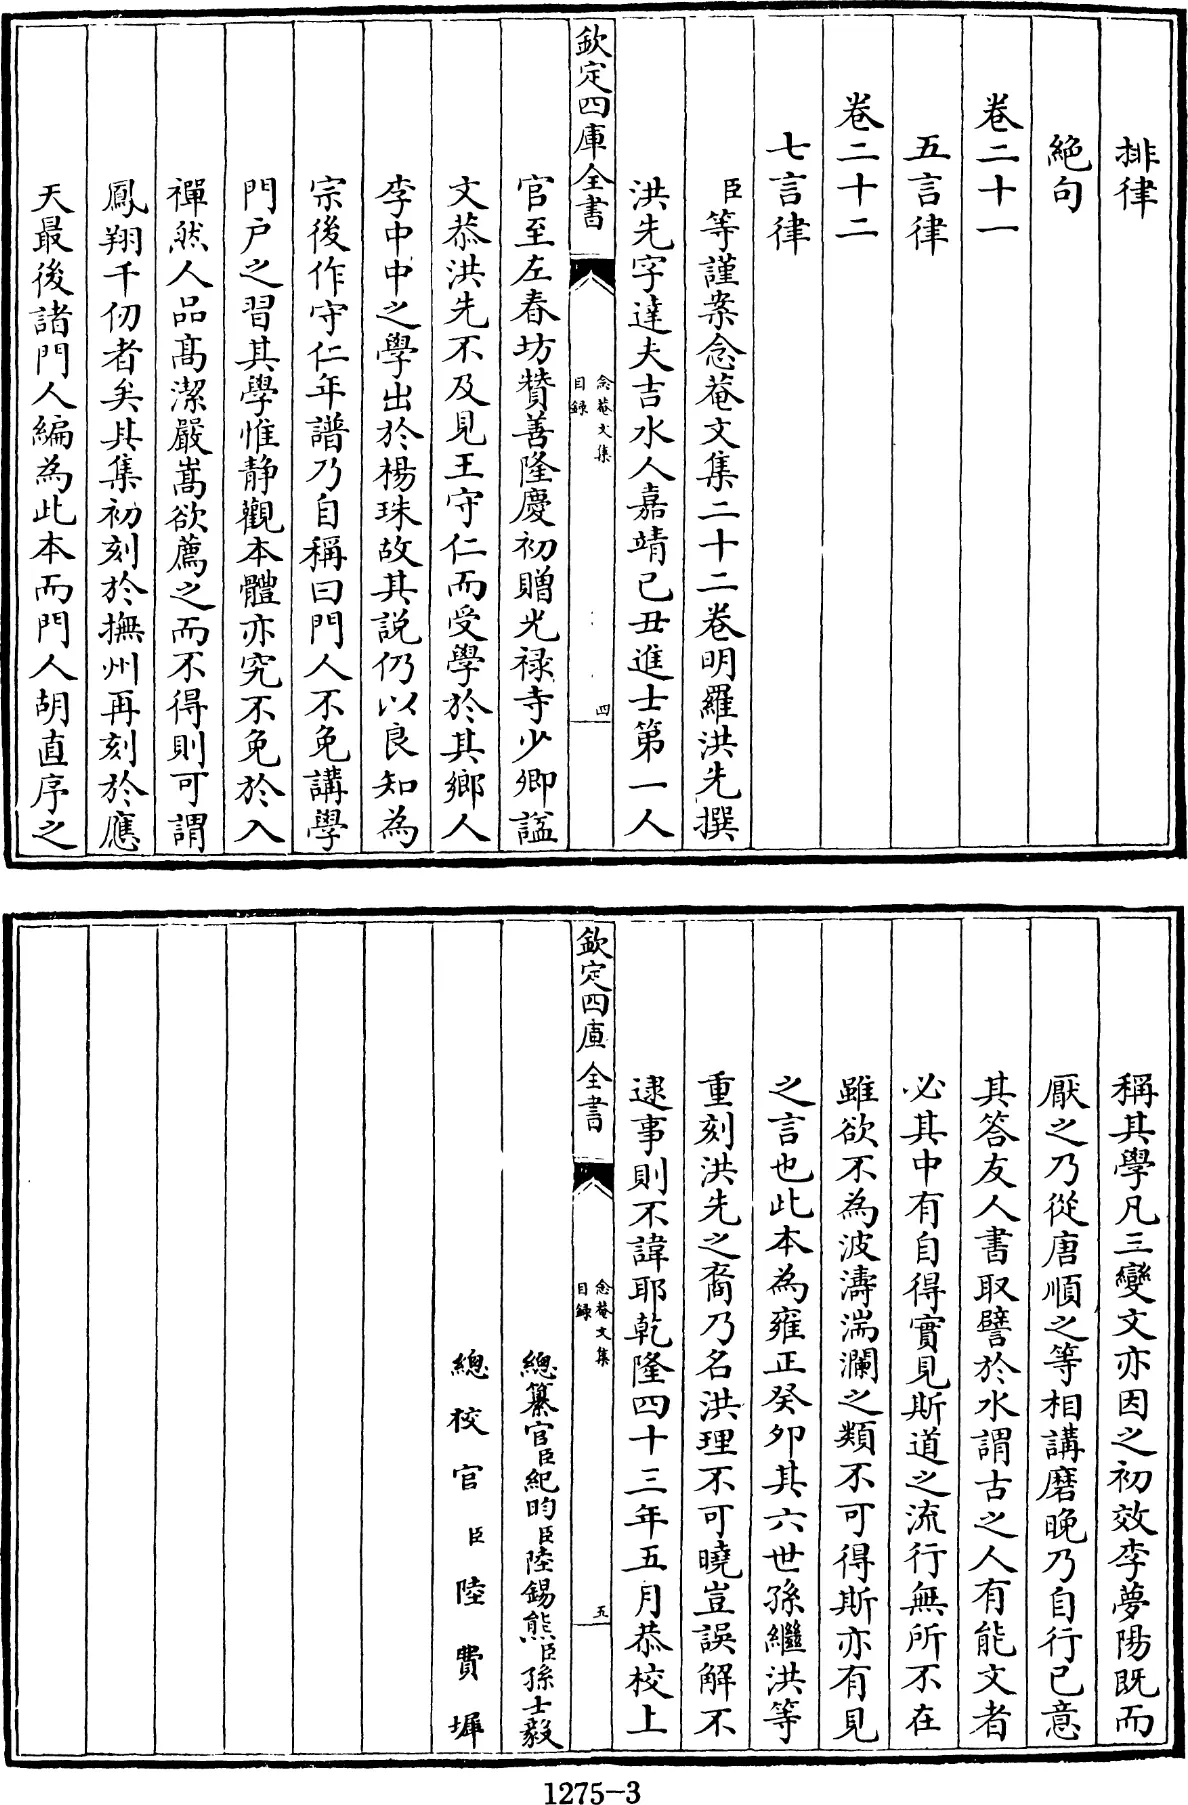 排律
絶句
卷二十一
五言律
卷二十二
七言律
臣等謹案念菴文集二十二卷明羅洪先撰
洪先字達夫吉水人嘉靖己丑進士第一人
欽定四庫全書
念菴文集
目錄
四
官至左春坊贊善隆慶初贈光禄寺少卿謚
文恭洪先不及見王守仁而受學於其鄉人
李中中之學出於楊珠故其説仍以良知為
宗後作守仁年譜乃自稱曰門人不免講學
門户之習其學惟静觀本體亦究不免於入
禪然人品高潔嚴嵩欲薦之而不得則可謂
鳳翔千仞者矣其集初刻於撫州再刻於應
天最後諸門人編為此本而門人胡直序之
稱其學凡三變文亦因之初效李夢陽既而
厭之乃從唐順之等相講磨晚乃自行已意
其答友人書取譬於水謂古之人有能文者
必其中有自得實見斯道之流行無所不在
雖欲不為波濤湍瀾之類不可得斯亦有見
之言也此本為雍正癸卯其六世孫繼洪等
重刻洪先之裔乃名洪理不可曉豈誤解不
逮事則不諱耶乾隆四十三年五月恭校上
欽定四庫全書
念菴文集
目錄
五
總纂官臣紀昀臣陸錫熊臣孫士毅
總校官臣陸費墀
1275-3